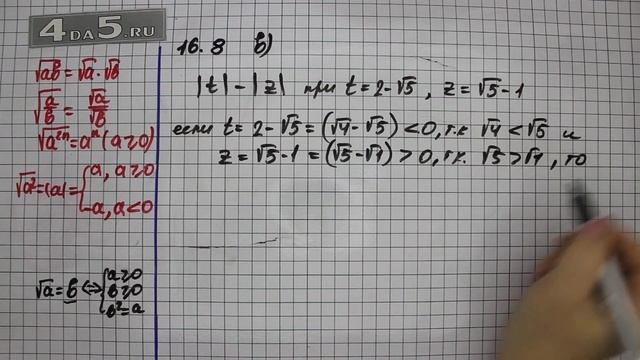 4 ДА 5.RU
√ab = √a · √b
√(a/b) = √a/√b
√a²ⁿ = aⁿ (a ≥ 0)
√a² = |a| = { a, a ≥ 0
-a, a < 0
√a = b ⇔ { a ≥ 0
b ≥ 0
b² = a
16.8 в)
|t| - |z| при t = 2-√5, z = √5-1
если t = 2-√5 = (√4-√5) < 0, т.к. √4 < √5 и
z = √5-1 = (√5-√1) > 0, т.к. √5 > √1, то